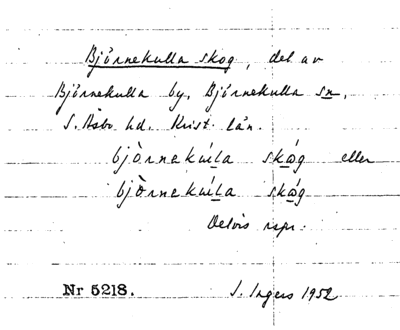 Björnekulla skog, del av
Björnekulla by, Björnekulla sn,
S. Åsbo hd. Krist. län.
bjòrnekúlla skág eller
bjòrnekúlla skág
Delvis uppr.
Nr 5218. S. Ingers 1952